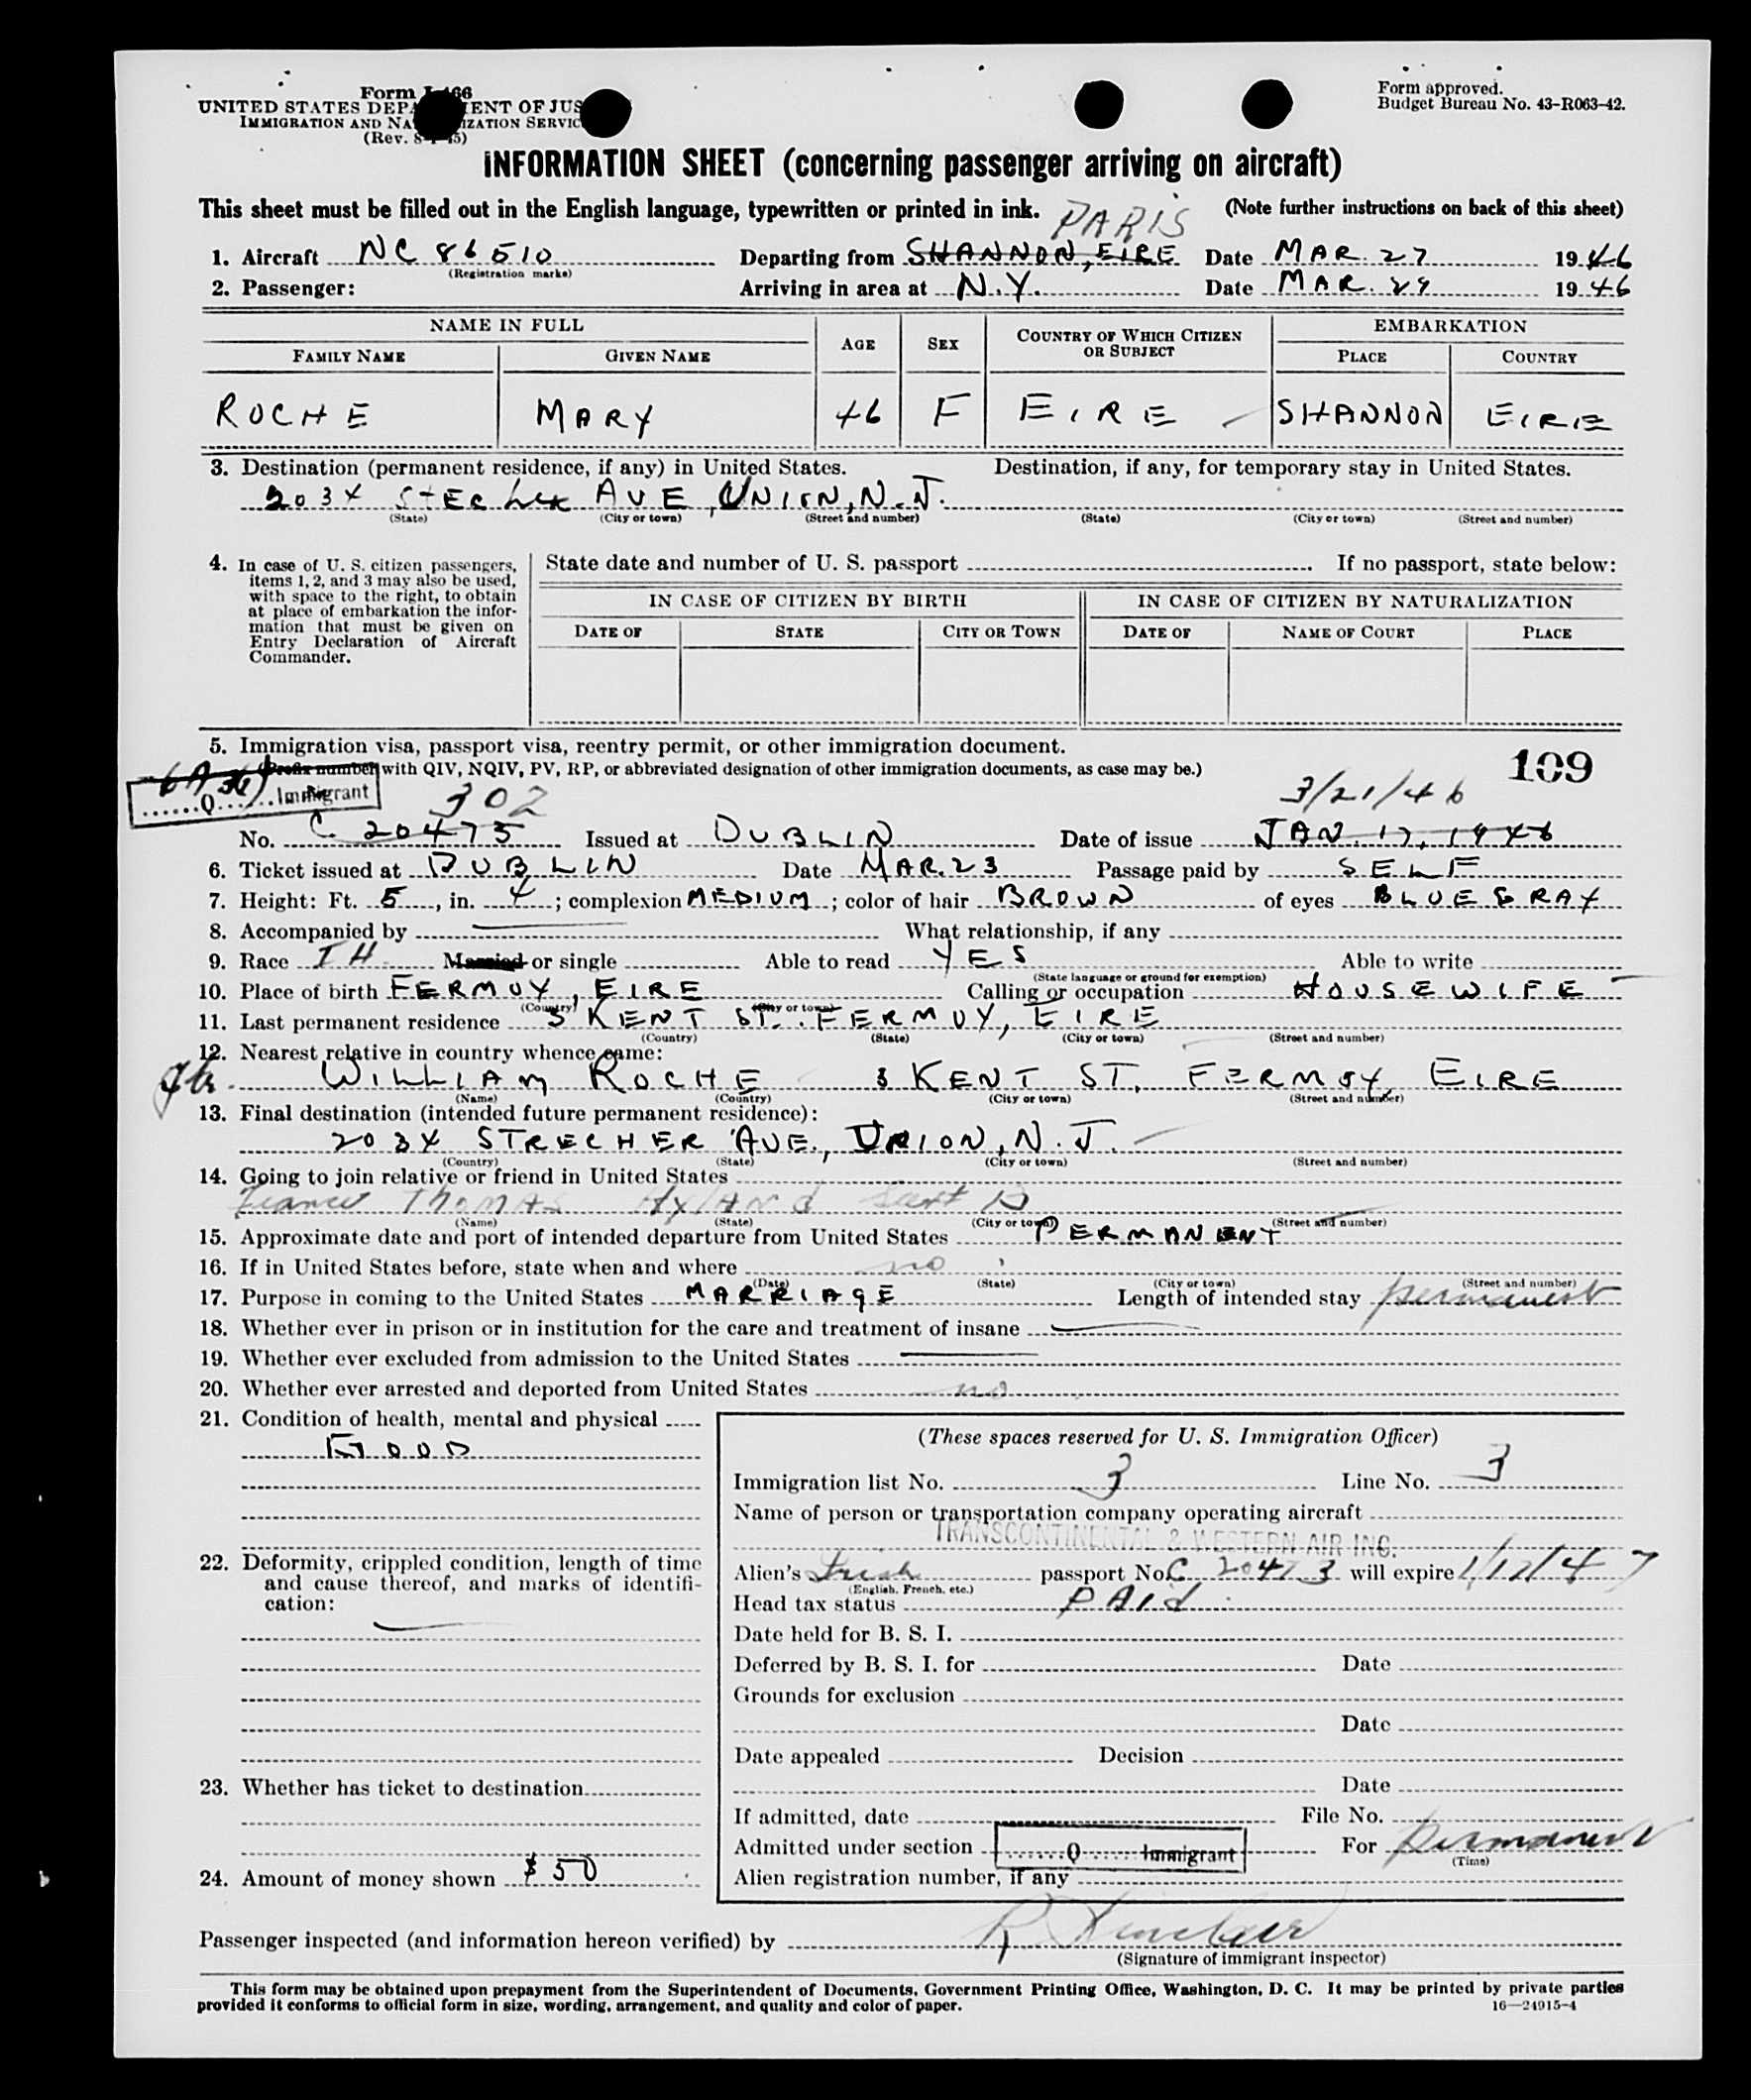 Form I-466
UNITED STATES DEPARTMENT OF JUSTICE
IMMIGRATION AND NATURALIZATION SERVICE
(Rev. 8-1-45)
Form approved.
Budget Bureau No. 43-R063-42.
INFORMATION SHEET (concerning passenger arriving on aircraft)
This sheet must be filled out in the English language, typewritten or printed in ink. (Note further instructions on back of this sheet)
PARIS
1. Aircraft NC 86510 Departing from SHANNON, EIRE Date MAR. 27 1946
(Registration marks)
2. Passenger: Arriving in area at N.Y. Date MAR. 29 1946
NAME IN FULL AGE SEX COUNTRY OF WHICH CITIZEN OR SUBJECT EMBARKATION
FAMILY NAME GIVEN NAME PLACE COUNTRY
ROCHE MARY 46 F EIRE SHANNON EIRE
3. Destination (permanent residence, if any) in United States. Destination, if any, for temporary stay in United States.
2034 STECHER AVE, UNION, N.J.
(State) (City or town) (Street and number) (State) (City or town) (Street and number)
4. In case of U. S. citizen passengers, items 1, 2, and 3 may also be used, with space to the right, to obtain at place of embarkation the information that must be given on Entry Declaration of Aircraft Commander.
State date and number of U. S. passport If no passport, state below:
IN CASE OF CITIZEN BY BIRTH IN CASE OF CITIZEN BY NATURALIZATION
DATE OF STATE CITY OR TOWN DATE OF NAME OF COURT PLACE
5. Immigration visa, passport visa, reentry permit, or other immigration document.
(Prefix number with QIV, NQIV, PV, RP, or abbreviated designation of other immigration documents, as case may be.) 109
Q Immigrant 302 3/21/46
No. C. 20475 Issued at DUBLIN Date of issue JAN. 17, 1946
6. Ticket issued at DUBLIN Date MAR. 23 Passage paid by SELF
7. Height: Ft. 5, in. 4; complexion MEDIUM; color of hair BROWN of eyes BLUE GRAY
8. Accompanied by What relationship, if any
9. Race IH Married or single Able to read YES Able to write
(State language or ground for exemption)
10. Place of birth FERMOY, EIRE Calling or occupation HOUSEWIFE
(Country) (City or town)
11. Last permanent residence 3 KENT ST. FERMOY, EIRE
(Country) (State) (City or town) (Street and number)
12. Nearest relative in country whence came:
WILLIAM ROCHE 3 KENT ST. FERMOY, EIRE
(Name) (Country) (City or town) (Street and number)
13. Final destination (intended future permanent residence):
2034 STRECHER AVE., UNION, N.J.
(Country) (State) (City or town) (Street and number)
14. Going to join relative or friend in United States
Fiance THOMAS HYLAND
(Name) (State) (City or town) (Street and number)
15. Approximate date and port of intended departure from United States PERMANENT
16. If in United States before, state when and where no
(Date) (State) (City or town) (Street and number)
17. Purpose in coming to the United States MARRIAGE Length of intended stay permanent
18. Whether ever in prison or in institution for the care and treatment of insane
19. Whether ever excluded from admission to the United States
20. Whether ever arrested and deported from United States no
21. Condition of health, mental and physical
GOOD
22. Deformity, crippled condition, length of time and cause thereof, and marks of identification:
23. Whether has ticket to destination
24. Amount of money shown $50
(These spaces reserved for U. S. Immigration Officer)
Immigration list No. 3 Line No. 3
Name of person or transportation company operating aircraft
TRANSCONTINENTAL & WESTERN AIR INC.
Alien's Irish passport No. C 20473 will expire 1/17/47
(English, French, etc.)
Head tax status PAId
Date held for B. S. I.
Deferred by B. S. I. for Date
Grounds for exclusion
Date
Date appealed Decision
Date
If admitted, date File No.
Admitted under section Q Immigrant For permanent
(Time)
Alien registration number, if any
Passenger inspected (and information hereon verified) by R Sinclair
(Signature of immigrant inspector)
This form may be obtained upon prepayment from the Superintendent of Documents, Government Printing Office, Washington, D. C. It may be printed by private parties
provided it conforms to official form in size, wording, arrangement, and quality and color of paper. 16—24915-4